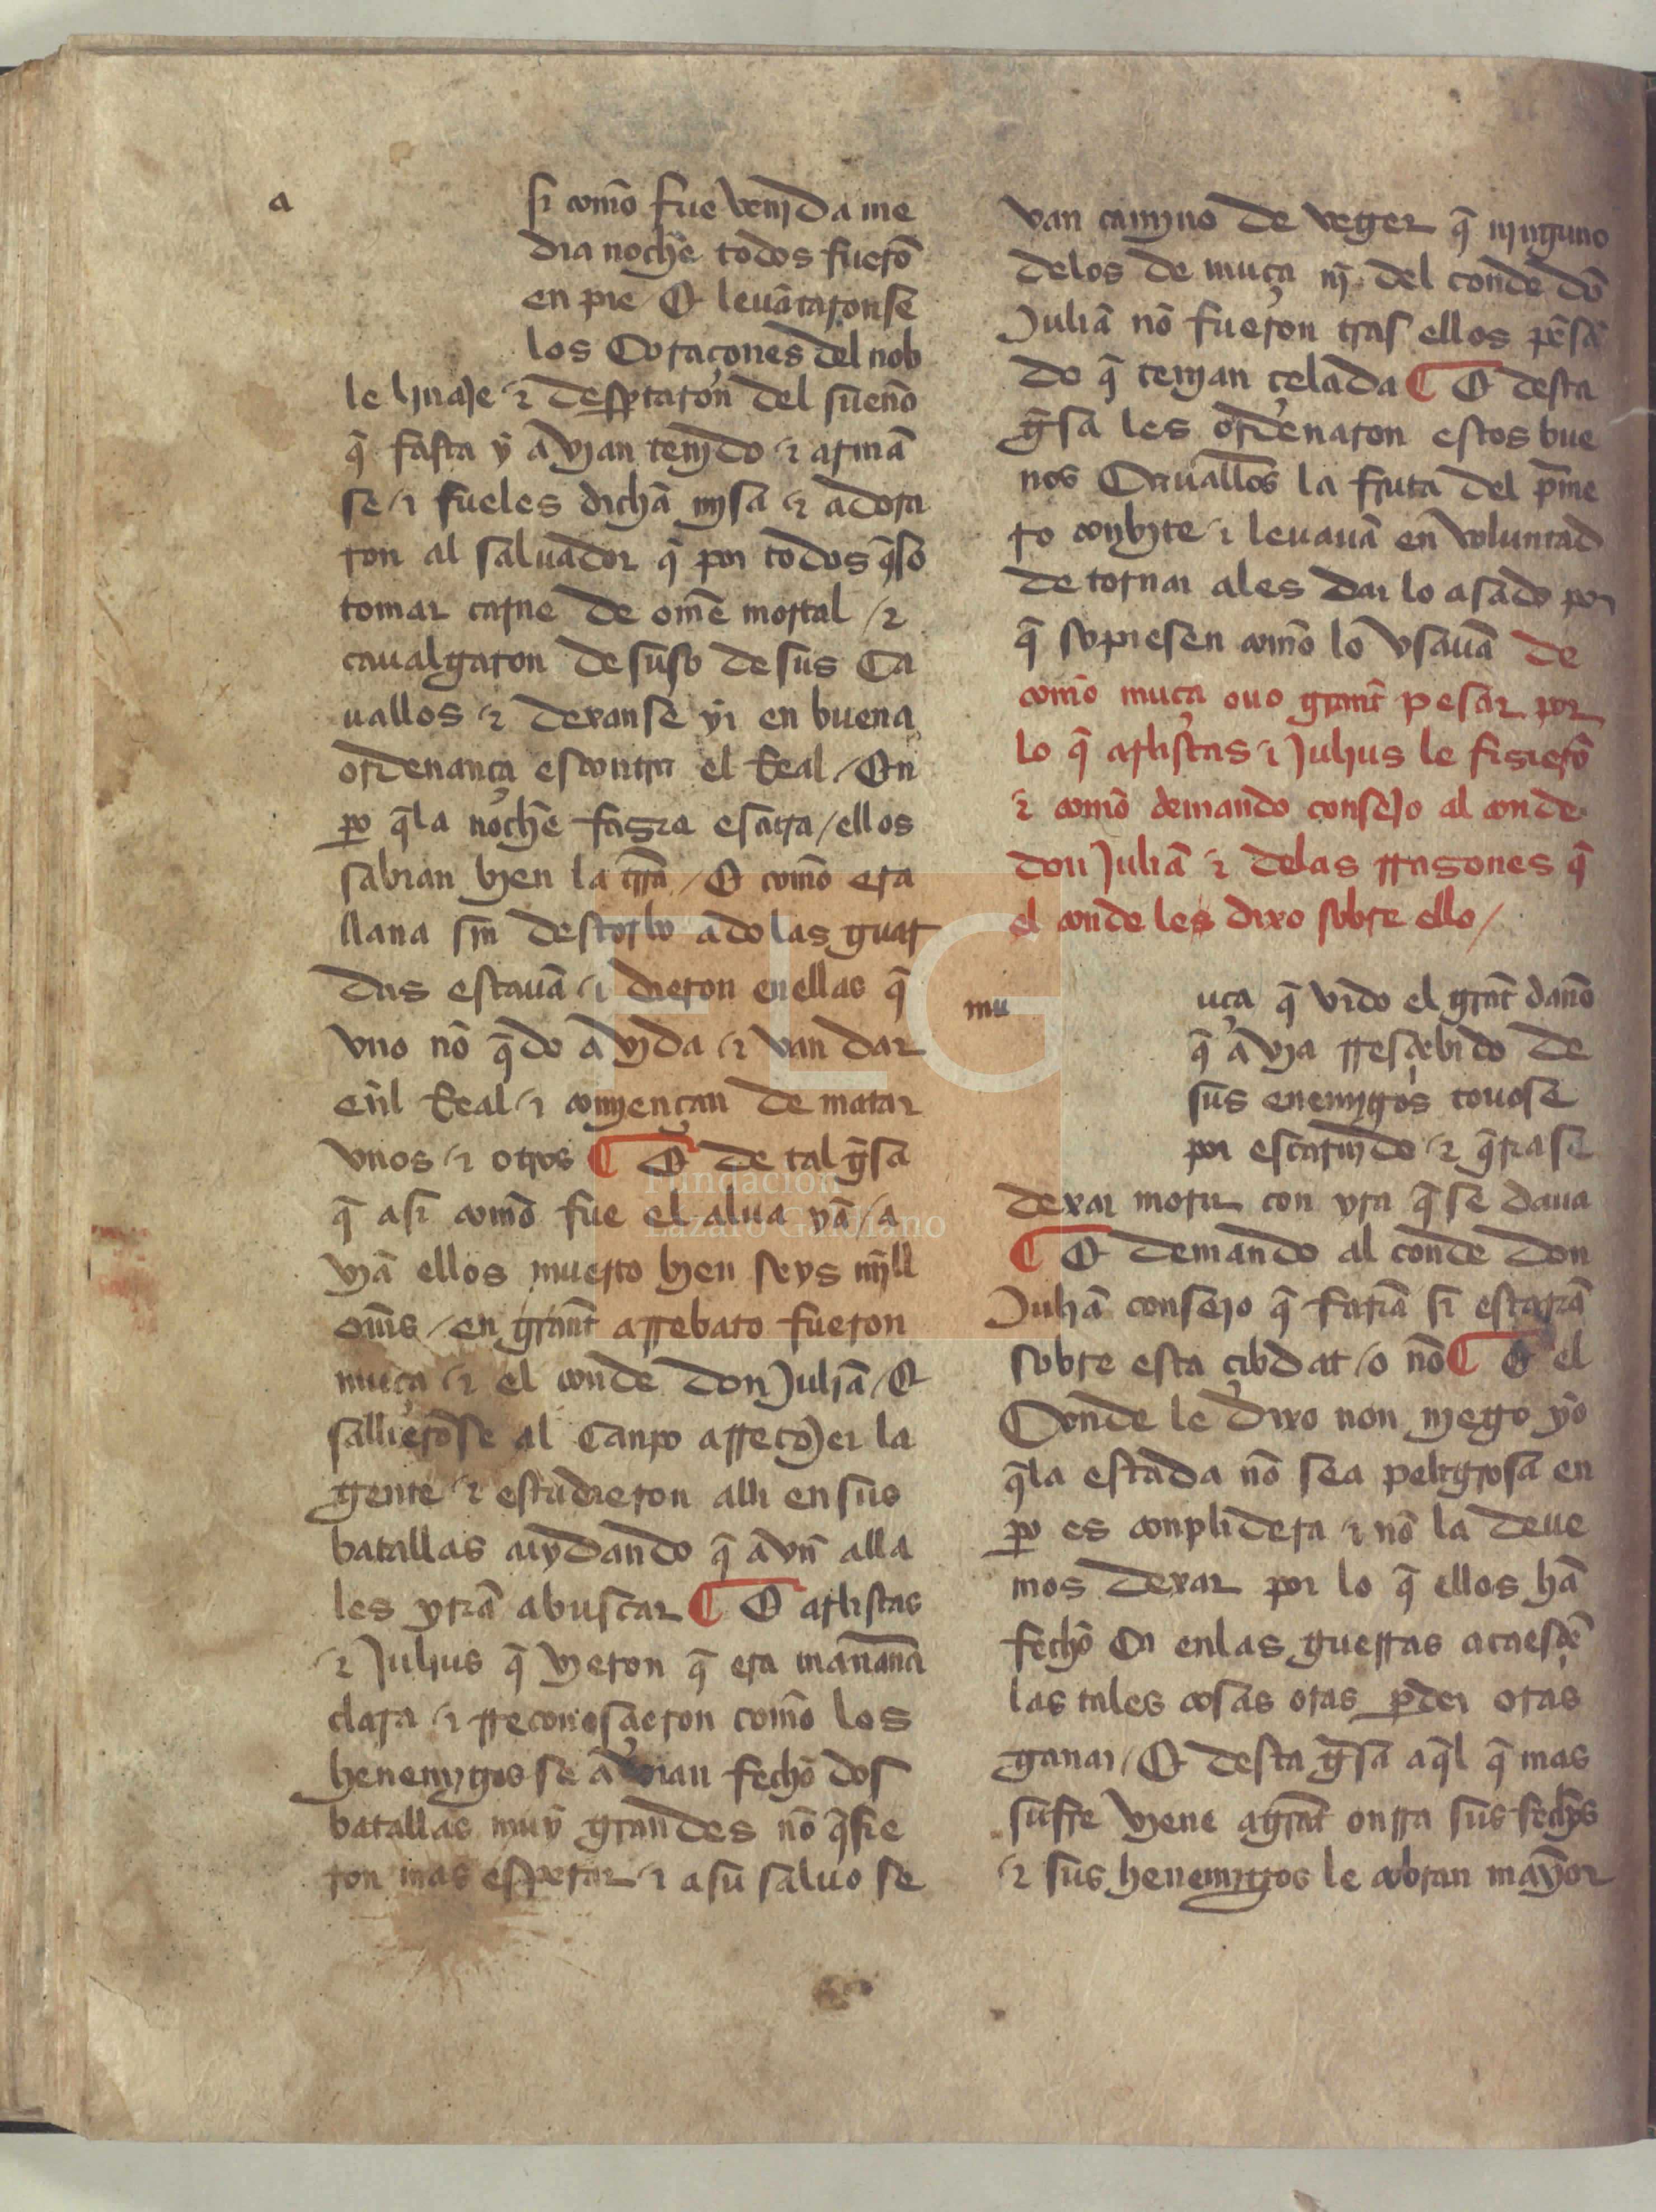 a
si com̃o fue venjda me
dia noch̃e todos fuerõ
en pie / E leuãtaronse
los Coraçones del nob
le linaje & despertaron del sueño
q̃ fasta ỹ avian tenjdo & armã
se & fueles dichã mjsa & adora
ron al saluador q̃ por todos q̃so
tomar carne de om̃e mortal / &
caualgaron desuso desus Ca
uallos & dexanse yr en buena
ordenança escontra el Real / En
ꝑo q̃la noch̃e fazia escura / ellos
sabian bien la trr̃a / E com̃o era
llana sin destorbo ado las guar
das estauã & dieron enellas q̃
vno nõ q̃do a vjda & van dar
eñl Real & comjençan de matar
vnos & otros ¶ E de tal g̃sa
q̃ asi com̃o fue el alua yã / a
vjã ellos muerto bien seys mjll
om̃s / en grant̃ arrebato fueron
muça & el conde don Juliã / E
sallierõse al Canpo arrecojer la
gente & estudieron alli en sus
batallas cuydando q̃ avñ alla
les yriã abuscar ¶ E arlistas
& Julius q̃ vieron q̃ era mañana
clara & rreconosçieron com̃o los
henemjgos se avian fecho dos
batallas muỹ grandes nõ q̃sie
ron mas esperar & asu saluo se
van camjno de veger q̃ njnguno
delos de muça nj̃ del conde dõ
Juliã nõ fueron tras ellos pẽsã
do q̃ tenjan çelada ¶ E desta
g̃sa les ordenaron estos bue
nos Cauallos̃ la fruta del p̃me
ro conbite & leuauã en voluntad
de tornar ales dar lo asado por
q̃ sopiesen com̃o lo vsauã de
com̃o muça ouo grant̃ pesar por
lo q̃ arlistas & Julius le fizierõ
& com̃o demando consejo al conde
don Juliã & delas rrazones q̃
el conde les dixo sobre ello /
mu
uça q̃ vido el grãt daño
q̃ avia rresçebido de
sus enemjgos touose
por escarnjdo & q̃riase
dexar morir con yra q̃ se daua
¶ E demando al conde don
Juliã consejo q̃ fariã si estariã
sobre esta çibdat / o nõ ¶ E el
Conde le dixo non njego yo
q̃la estada nõ sea peligrosa en
ꝑo es conplidera & nõ la deue
mos dexar por lo q̃ ellos hã
fecho Ca enlas guerras acaesçẽ
las tales cosas oras ꝑder oras
ganar / E desta g̃sa aq̃l q̃ mas
sufre viene agrãt onrra sus fechos
& sus henemjgos le cobran mayor